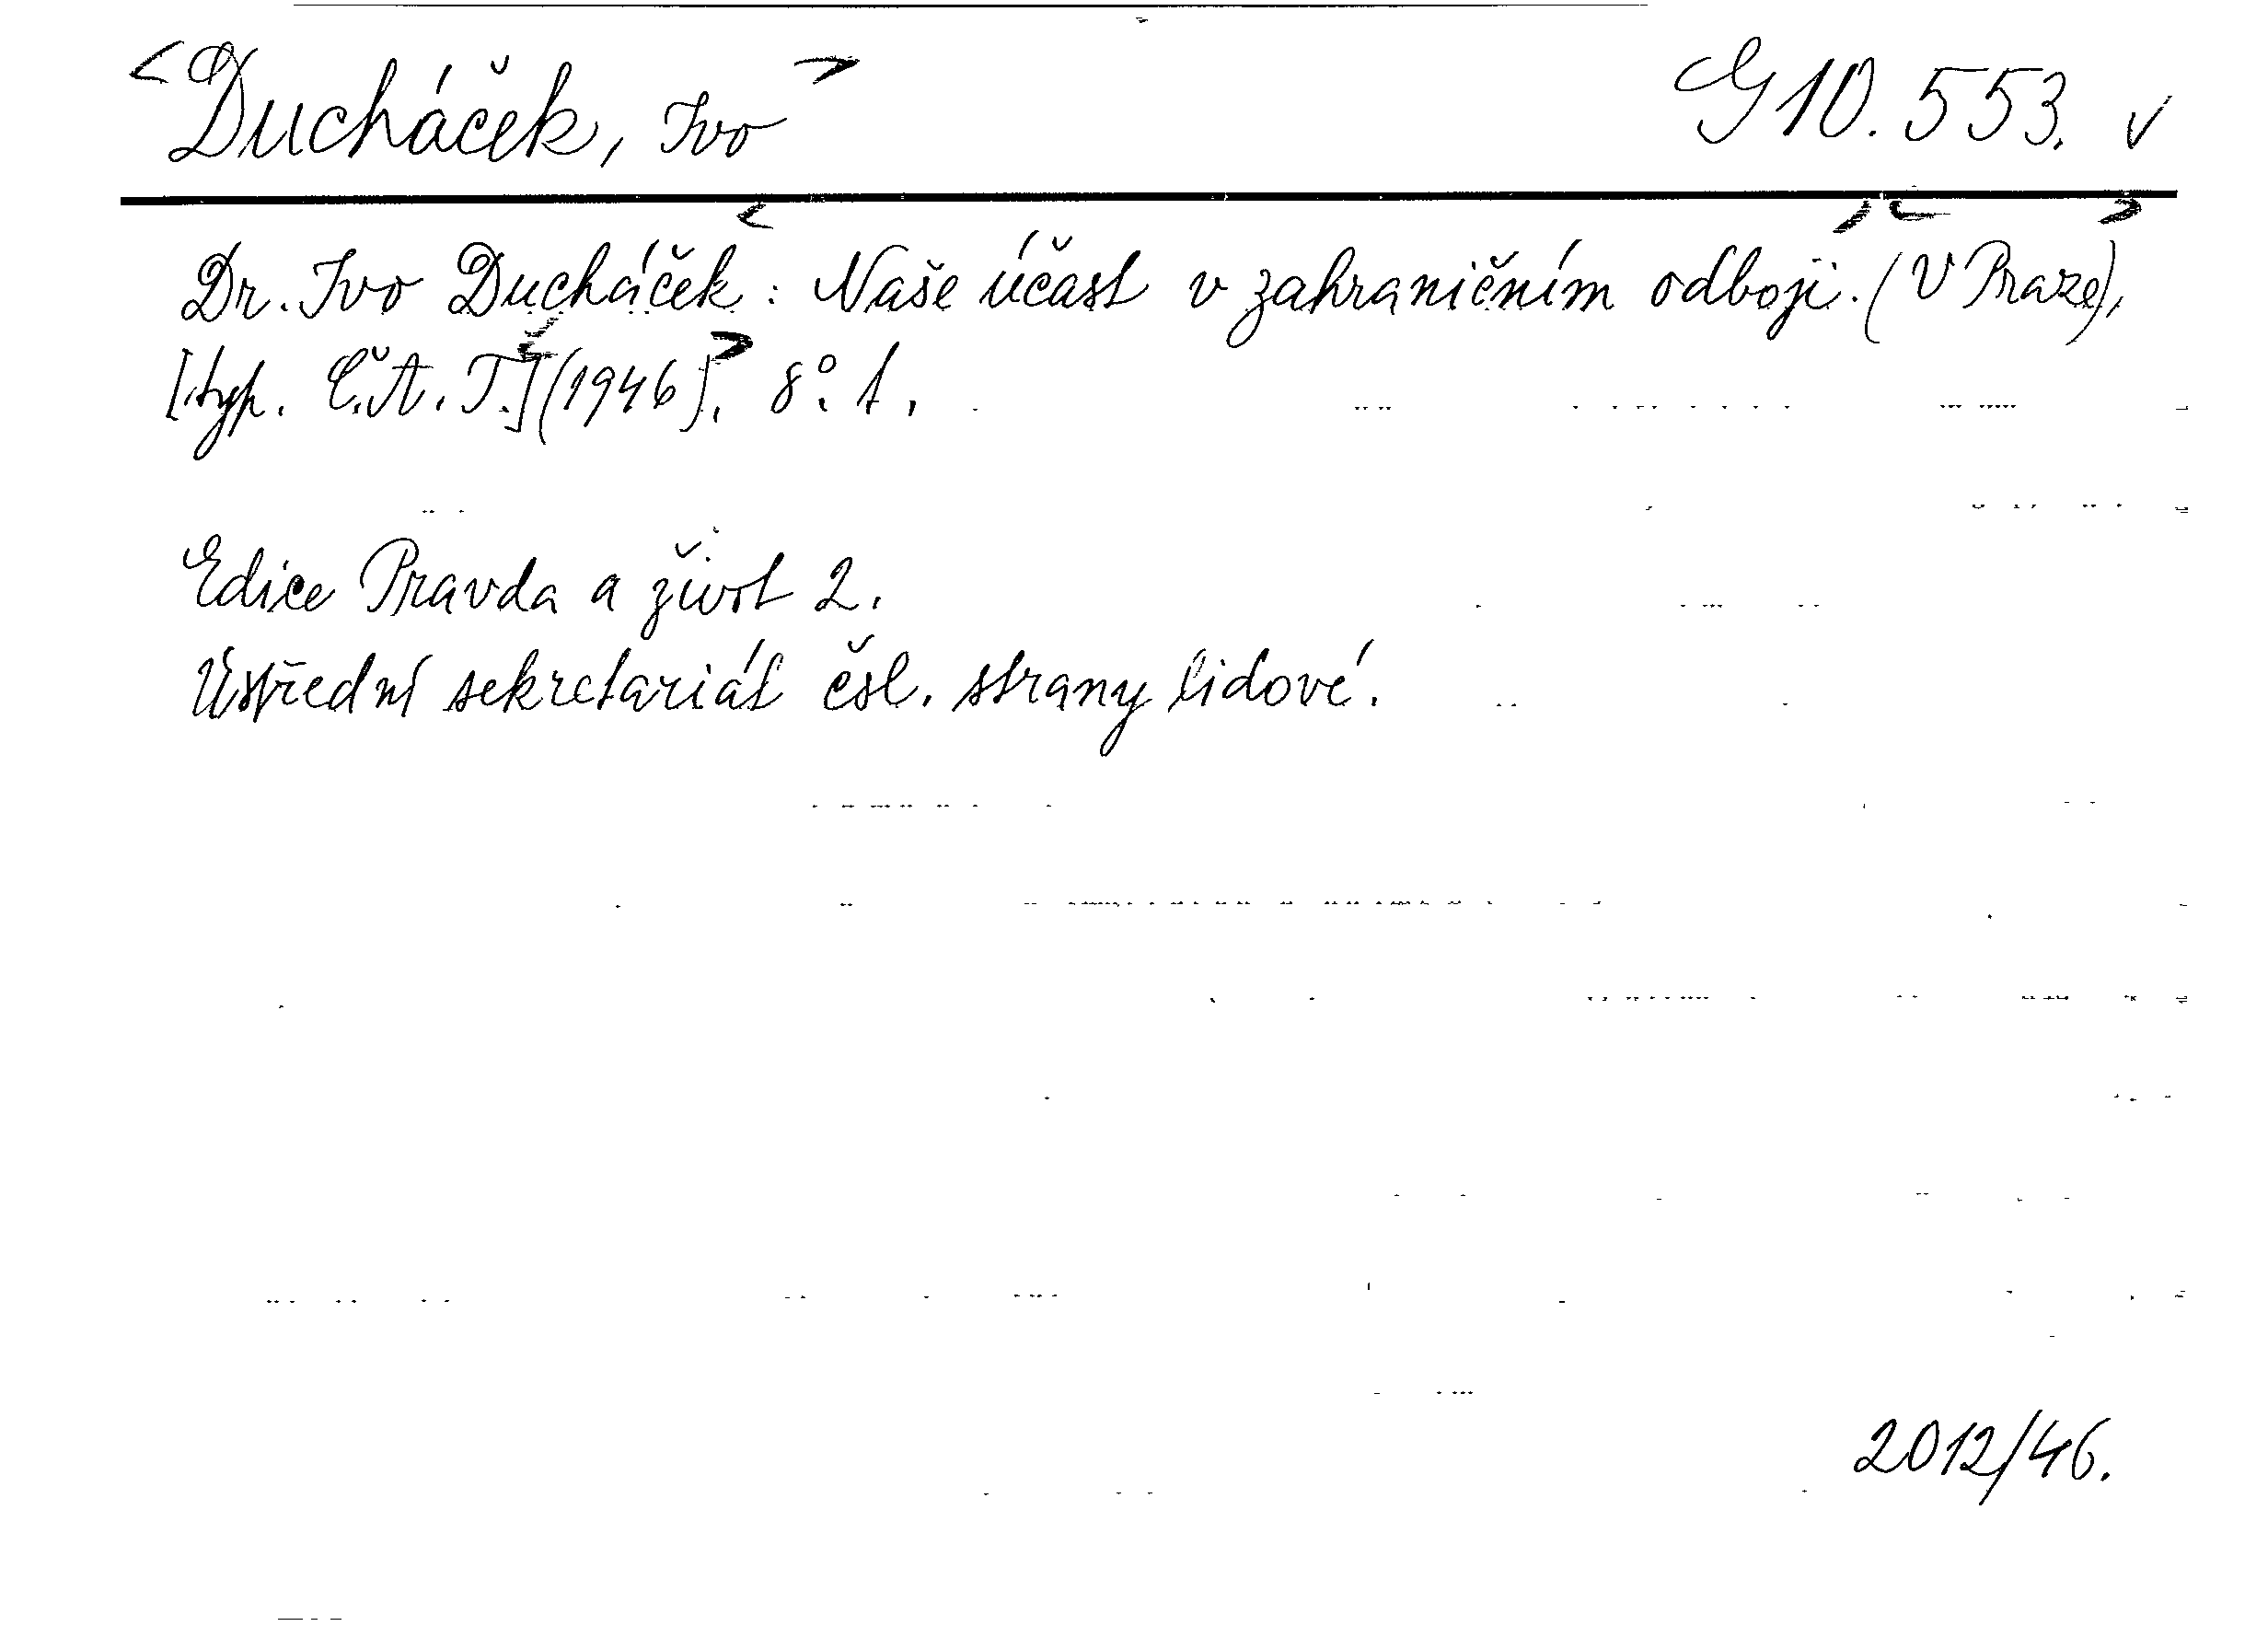 <Ducháček, Ivo> G 10.553. ✓
Dr. Ivo Ducháček: <Naše účast v zahraničním odboji.> <(V Praze)>,
[typ. Č.A.T.] <(1946)>. 8°. 1.
Edice Pravda a život 2.
Ústřední sekretariát čsl. strany lidové.
2012/46.